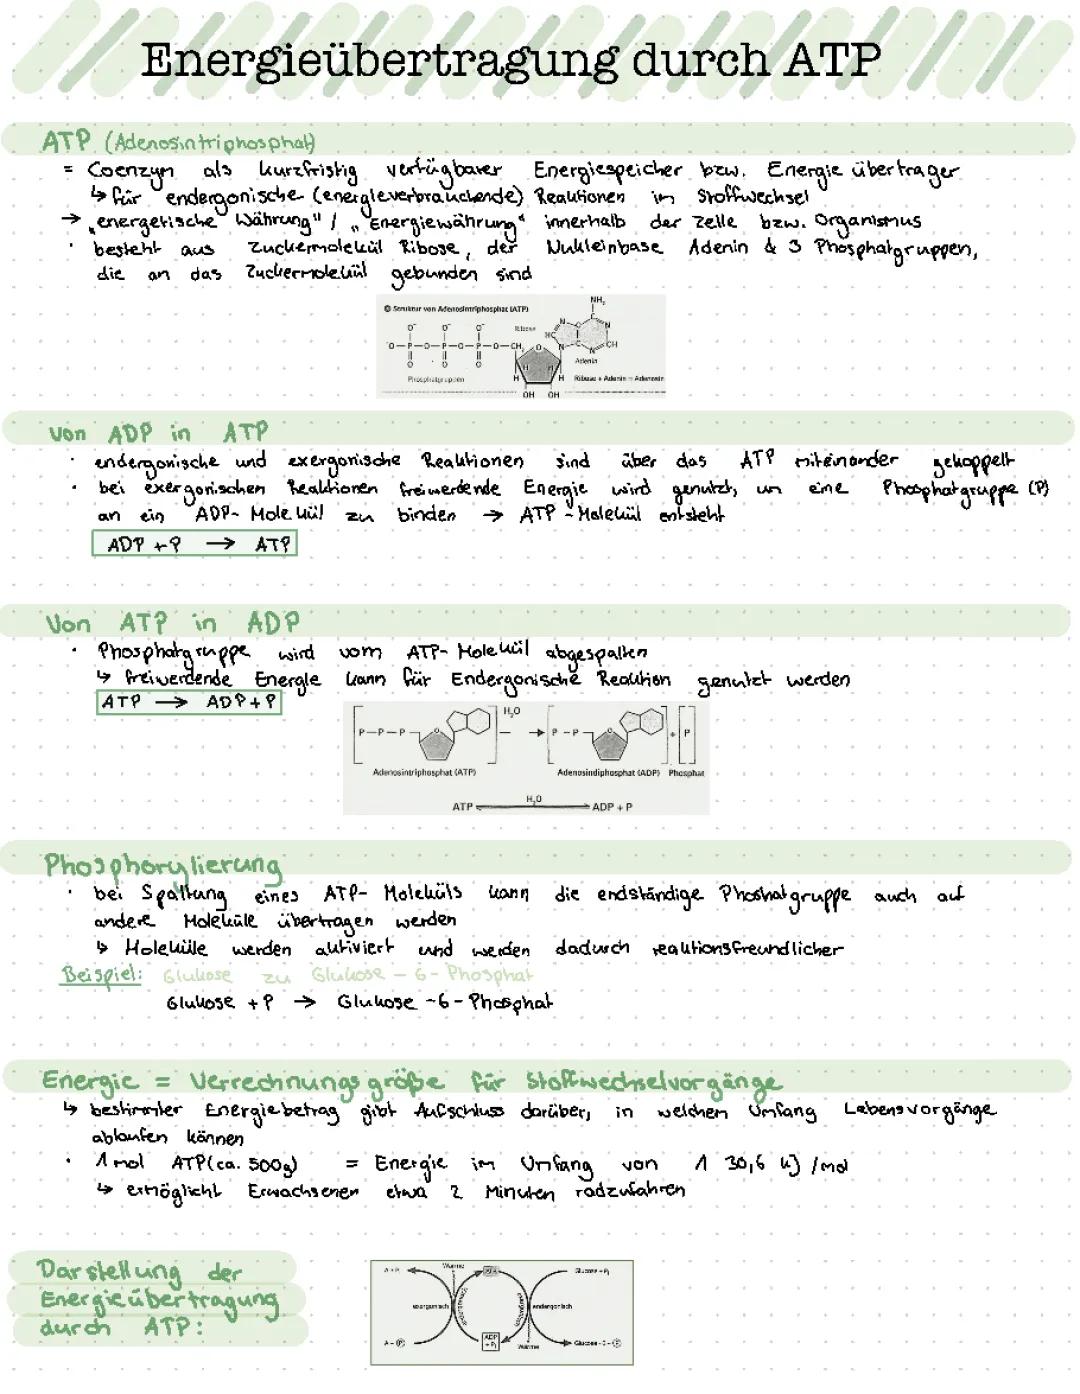 Energieübertragung durch ATP
ATP (Adenosintriphosphat)
= Coenzym als kurzfristig verfügbarer Energiespeicher bzw. Energieübertrager
↳ für endergonische (energieverbrauchende) Reaktionen im Stoffwechsel
→ „energetische Währung" / „Energiewährung" innerhalb der Zelle bzw. Organismus
· besteht aus Zuckermolekül Ribose, der Nukleinbase Adenin & 3 Phosphatgruppen,
die an das Zuckermolekül gebunden sind
Struktur von Adenosintriphosphat (ATP)
NH₂
O⁻ O⁻ O⁻ Ribose HC N C C N
⁻O-P-O-P-O-P-O-CH₂ O N C N CH
O O O Adenin
Phosphatgruppen H H H H Ribose + Adenin = Adenosin
OH OH
Von ADP in ATP
· endergonische und exergonische Reaktionen sind über das ATP miteinander gekoppelt
· bei exergonischen Reaktionen freiwerdende Energie wird genutzt, um eine Phosphatgruppe (P)
an ein ADP-Molekül zu binden → ATP-Molekül entsteht
ADP + P → ATP
Von ATP in ADP
· Phosphatgruppe wird vom ATP-Molekül abgespalten
↳ freiwerdende Energie kann für Endergonische Reaktion genutzt werden
ATP → ADP + P
H₂O
P-P-P O P-P O + P
Adenosintriphosphat (ATP) Adenosindiphosphat (ADP) Phosphat
H₂O
ATP ADP + P
Phosphorylierung
· bei Spaltung eines ATP-Moleküls kann die endständige Phoshatgruppe auch auf
andere Moleküle übertragen werden
↳ Moleküle werden aktiviert und werden dadurch reaktionsfreundlicher
Beispiel: Glukose zu Glukose-6-Phosphat
Glukose + P → Glukose-6-Phosphat
Energie = Verrechnungsgröße für Stoffwechselvorgänge
↳ bestimmter Energiebetrag gibt Aufschluss darüber, in welchem Umfang Lebensvorgänge
ablaufen können
· 1 mol ATP (ca. 500g) = Energie im Umfang von 1 30,6 kJ/mol
↳ ermöglicht Erwachsenen etwa 2 Minuten radzufahren
Darstellung der
Energieübertragung
durch ATP:
A + Pᵢ Wärme ATP Glucose + Pᵢ
exergonisch endergonisch exergonisch endergonisch
A - P ADP + Pᵢ Wärme Glucose-6-P